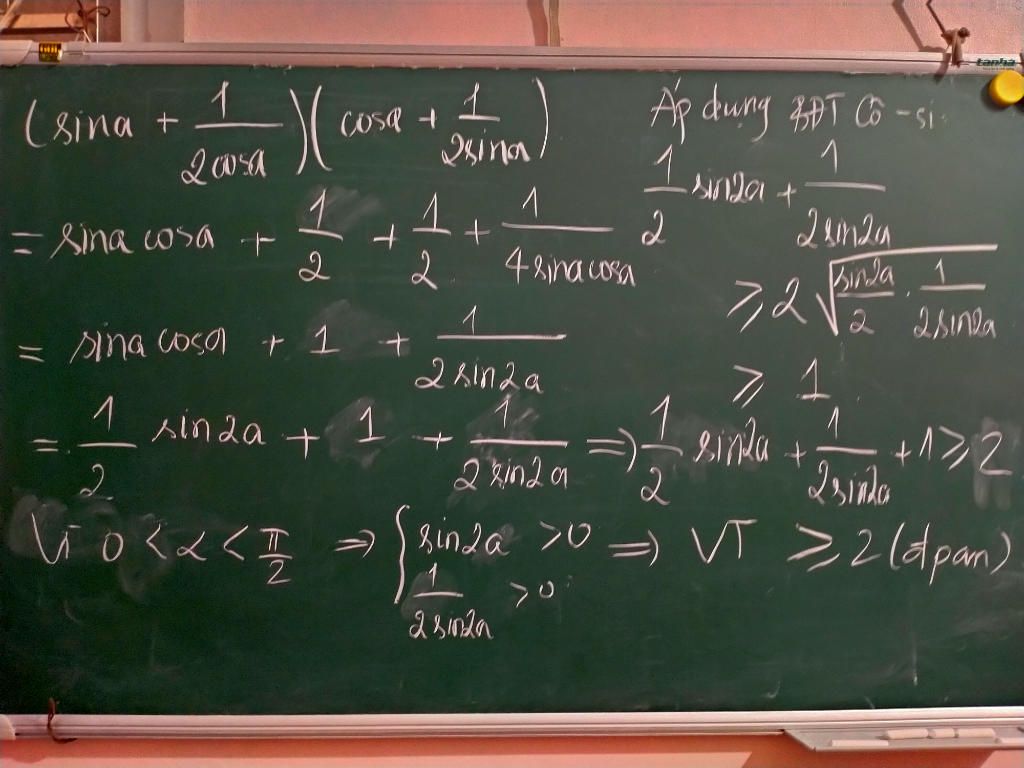 (sina + 1/2cosa)(cosa + 1/2sina)
= sina cosa + 1/2 + 1/2 + 1/4sinacosa
= sina cosa + 1 + 1/2sin2a
= 1/2 sin2a + 1 + 1/2sin2a
Vì 0 < α < π/2 => { sin2a > 0
1/2sin2a > 0
Áp dụng BĐT Cô-si:
1/2 sin2a + 1/2sin2a
≥ 2√(sin2a/2 . 1/2sin2a)
≥ 1
=> 1/2 sin2a + 1/2sin2a + 1 ≥ 2
=> VT ≥ 2 (đpcm)
tanha